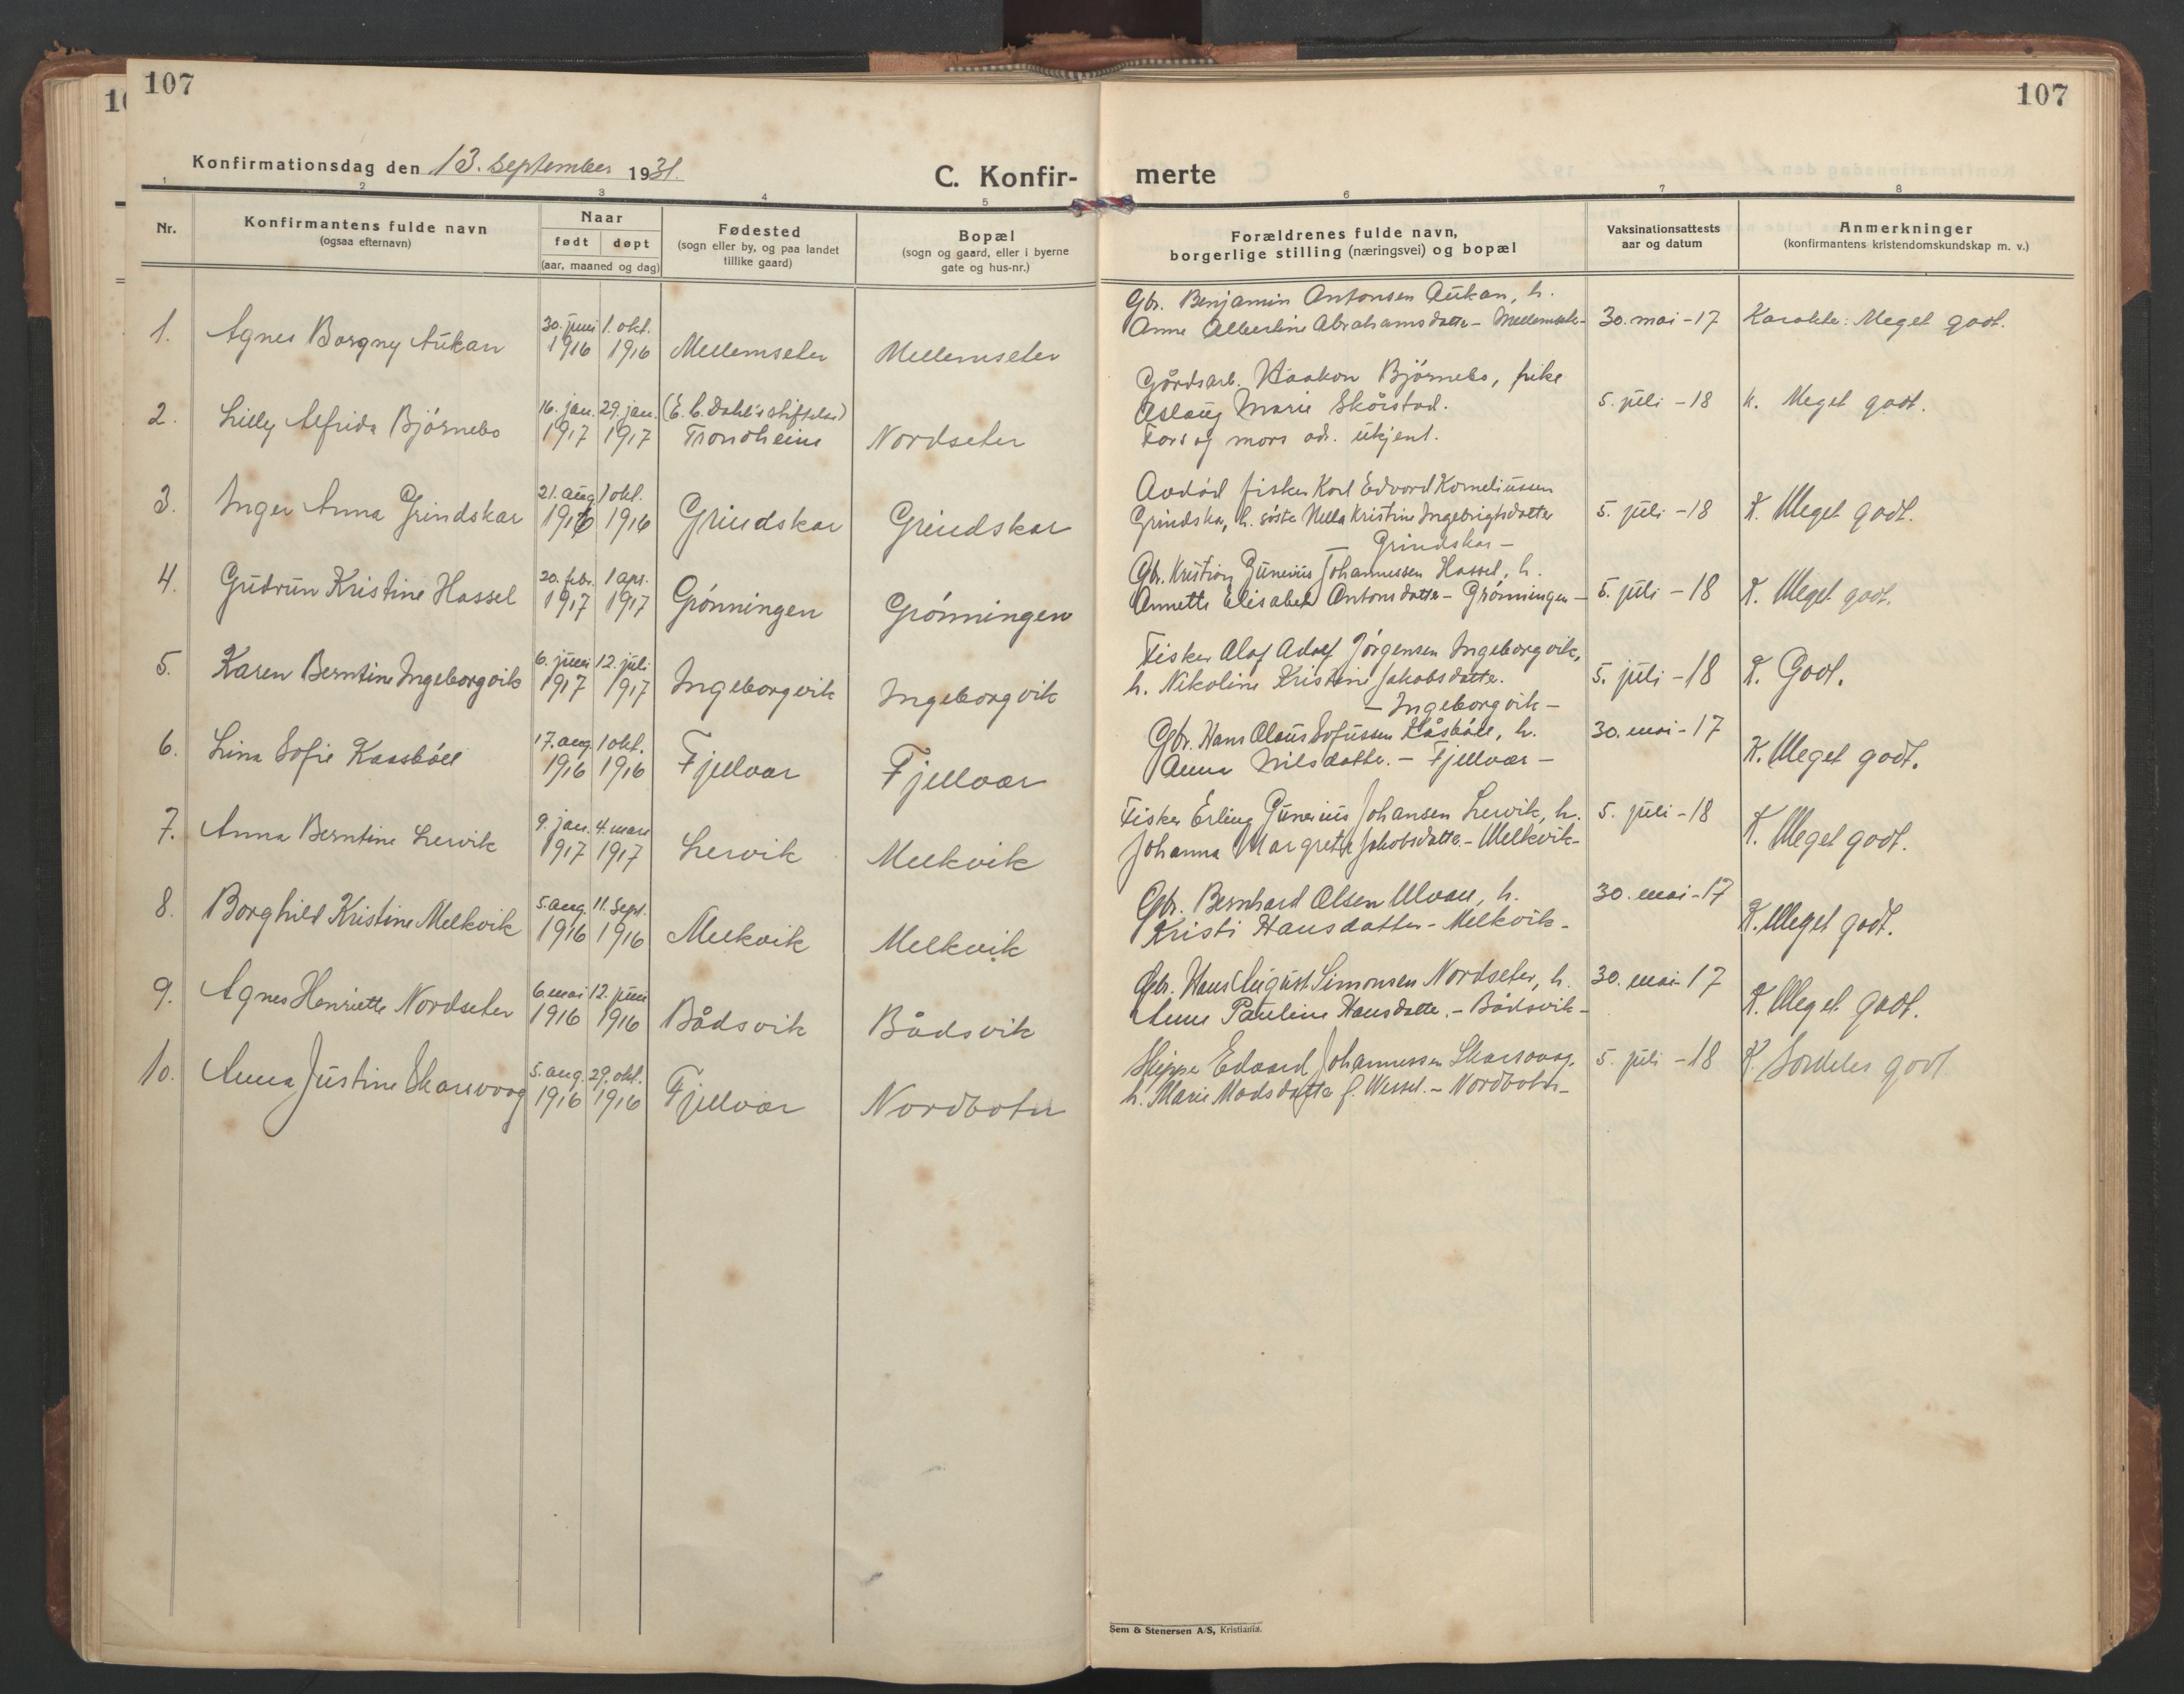 107
107
Konfirmationsdag den 13. september 1931.
C. Konfir-
merte
1 2 3 4 5 6 7 8
Nr.
Konfirmantens fulde navn
(ogsaa efternavn)
Naar
født døpt
(aar, maaned og dag)
Fødested
(sogn eller by, og paa landet
tillike gaard)
Bopæl
(sogn og gaard, eller i byerne
gate og hus-nr.)
Forældrenes fulde navn,
borgerlige stilling (næringsvei) og bopæl
Vaksinationsattests
aar og datum
Anmerkninger
(konfirmantens kristendomskundskap m. v.)
1. Agnes Borgny Aukan
30. juni 1. okt.
1916 1916
Mellemseter Mellemseter
Gbr. Benjamin Antonsen Aukan, h.
Anne Albertine Abrahamsdatter - Mellemseter -
30. mai - 17 Karakter: Meget godt.
2. Lilly Alfrida Bjørnebo
16. jan. 29. jan.
1917 1917
(E. C. Dahl's stiftelse)
Trondheim
Nordseter
Gårdsarb. Haakon Bjørnebo, pike
Aslaug Marie Skårstad.
Fars og mors adr. ukjent.
5. juli - 18 K. Meget godt.
3. Inger Anna Grindskar
21. aug 1 okt.
1916 1916
Grindskar Grindskar
Avdød fisker Karl Edvard Korneliussen
Grindskar, h. søster Nella Kristine Ingebrigtsdatter
- Grindskar -
5. juli - 18 K. Meget godt.
4. Gudrun Kristine Hassel
20. febr. 1 apr.
1917 1917
Grønningen Grønningen
Gbr. Kristian Gunerius Johannessen Hassel, h.
Annette Elisabet Antonsdatter - Grønningen -
5. juli - 18 K. Meget godt.
5. Karen Berntine Ingeborgvik
6. juni 12. juli
1917 1917
Ingeborgvik Ingeborgvik
Fisker Olaf Adolf Jørgensen Ingeborgvik,
h. Nikoline Kristine Jakobsdatter.
- Ingeborgvik -
5. juli - 18 K. Godt.
6. Lina Sofie Kaasbøll
17. aug 1 okt.
1916 1916
Fjellvær Fjellvær
Gbr. Hans Olaus Sofussen Kåsbøll, h.
Anna Nilsdatter. - Fjellvær -
30. mai - 17 K. Meget godt.
7. Anna Berntine Lervik
9. jan. 4. mars
1917 1917
Lervik Melkvik
Fisker Erling Gunerius Johansen Lervik, h.
Johanna Margrete Jakobsdatter. - Melkvik -
5. juli - 18 K. Meget godt.
8. Borghild Kristine Melkvik
5. aug. 11. sept.
1916 1916
Melkvik Melkvik
Gbr. Bernhard Olsen Ulvan, h.
Kristi Hansdatter - Melkvik -
30. mai - 17 K. Meget godt.
9. Agnes Henriette Nordseter
6. mai 12. juni
1916 1916
Bådsvik Bådsvik
Gbr. Hans August Simonsen Nordseter, h.
Anne Pauline Hansdatter. - Bådsvik -
30. mai - 17 K. Meget godt.
10. Anna Justine Skarsvaag
5. aug. 29. okt.
1916 1916
Fjellvær Nordbotn
Skipper Edvard Johannessen Skarsvaag,
h. Marie Madsdatter f. Wessel. - Nordbotn -
5. juli - 18 K. Særdeles godt
Sem & Stenersen A/S, Kristiania.